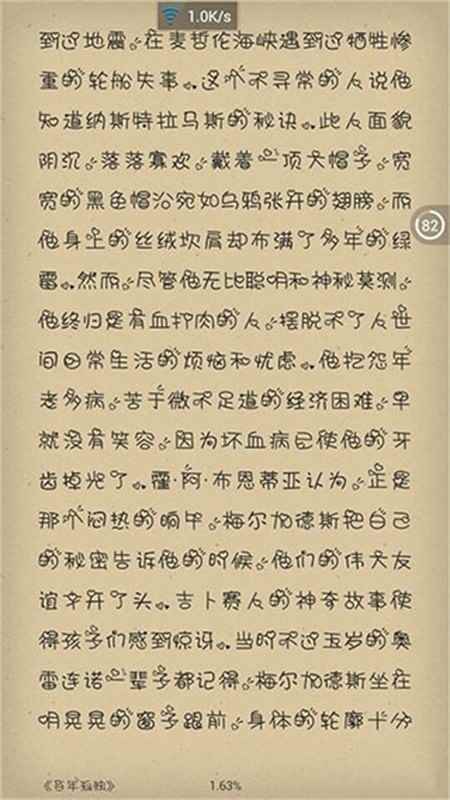 1.0K/s
到过地震。在麦哲伦海峡遇到过牺牲惨
重的轮船失事。这个不寻常的人说他
知道纳斯特拉马斯的秘诀。此人面貌
阴沉。落落寡欢。戴着一顶大帽子。宽
宽的黑色帽沿宛如乌鸦张开的翅膀。而
他身上的丝绒坎肩却布满了多年的绿
霉。然而。尽管他无比聪明和神秘莫测。
他终归是有血打肉的人。摆脱不了人世
间日常生活的烦恼和忧虑。他抱怨年
老多病。苦于微不足道的经济困难。早
就没有笑容。因为坏血病已使他的牙
齿掉光了。霍·阿·布恩蒂亚认为。正是
那个闷热的晌午。梅尔加德斯把自己
的秘密告诉他的时候。他们的伟大友
谊才开了头。吉卜赛人的神奇故事使
得孩子们感到惊讶。当时不过五岁的奥
雷连诺一辈子都记得。梅尔加德斯坐在
明晃晃的窗子跟前。身体的轮廓十分
82
《百年孤独》
1.63%